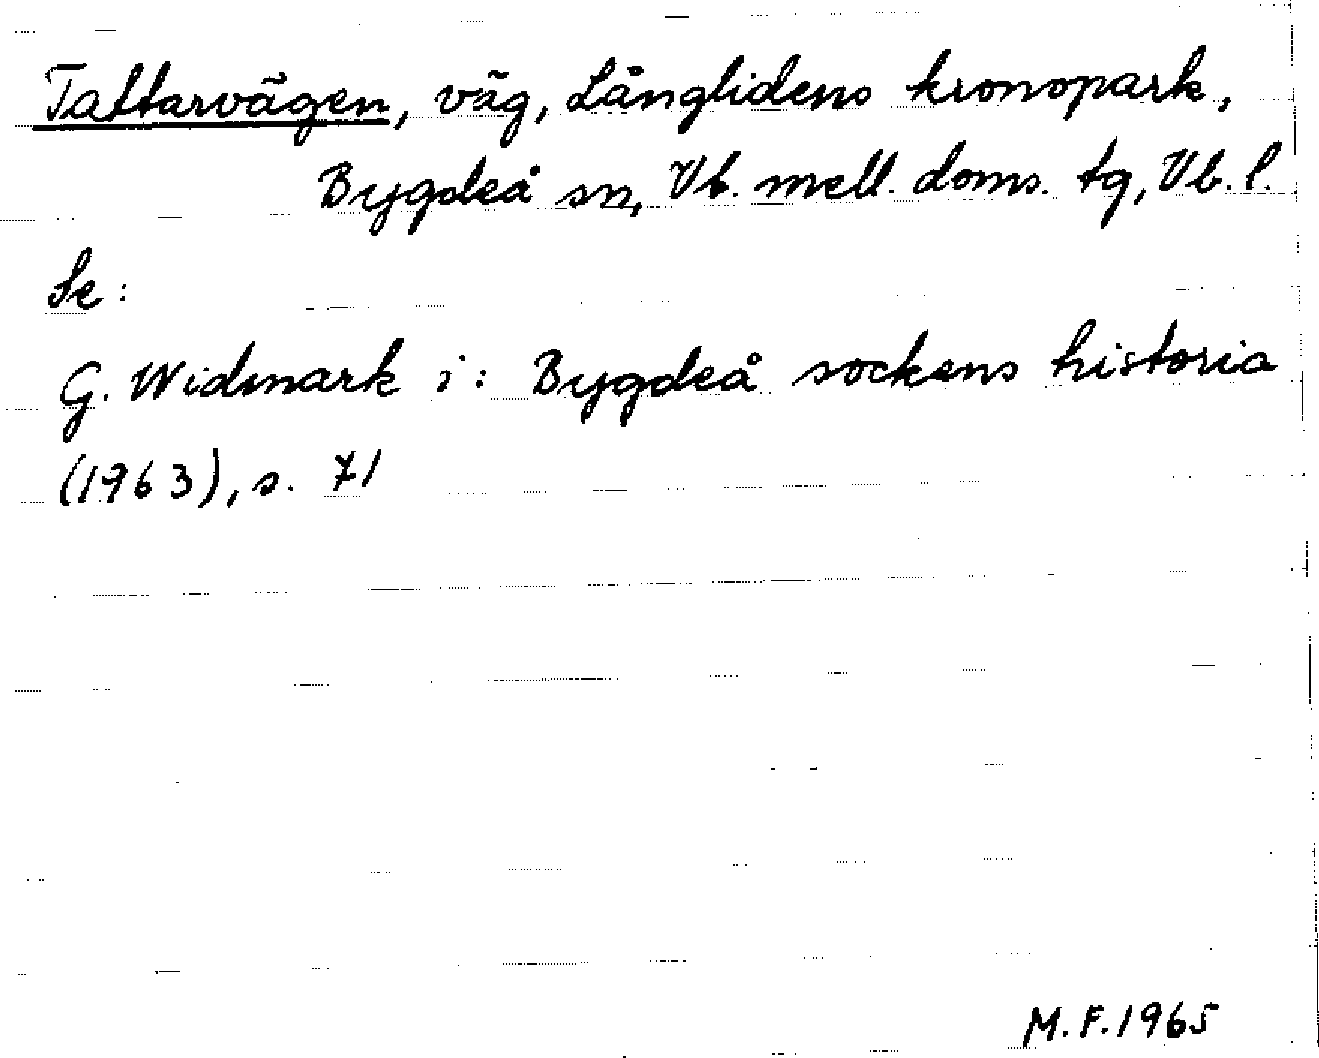 Tattarvägen, väg, Långlidens kronopark,
Bygdeå sn, Vb. mell. doms. tg, Vb. l.
Se:
G. Widmark i: Bygdeå sockens historia
(1963), s. 71
M.F.1965